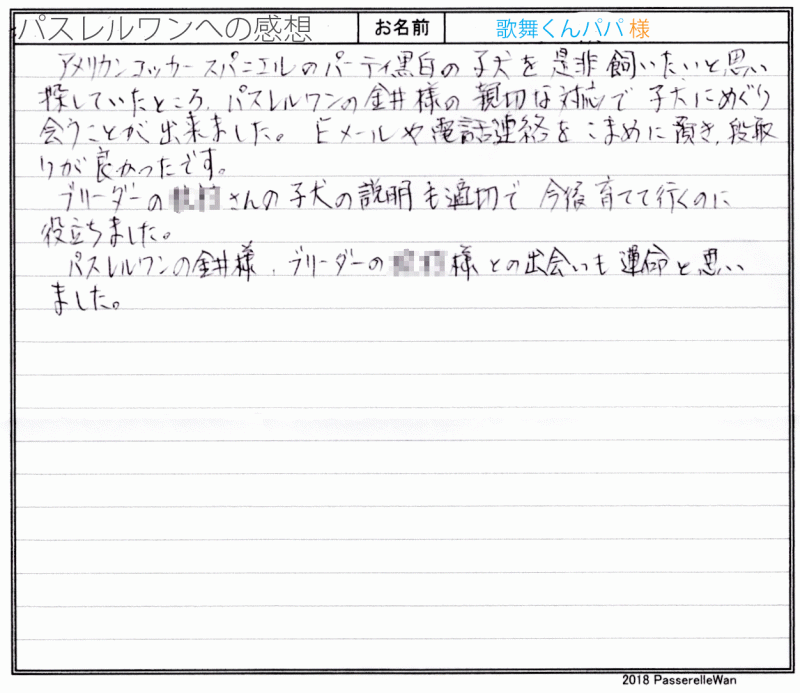 パスレルワンへの感想 お名前 歌舞くんパパ 様
アメリカンコッカースパニエルのパーティ黒白の子犬を是非飼いたいと思い
探していたところ、パスレルワンの金井様の親切な対応で子犬にめぐり
会うことが出来ました。Eメールや電話連絡をこまめに頂き、段取
りが良かったです。
ブリーダーの さんの子犬の説明も適切で今後育てて行くのに
役立ちました。
パスレルワンの金井様、ブリーダーの 様との出会いも運命と思い
ました。
2018 PasserelleWan